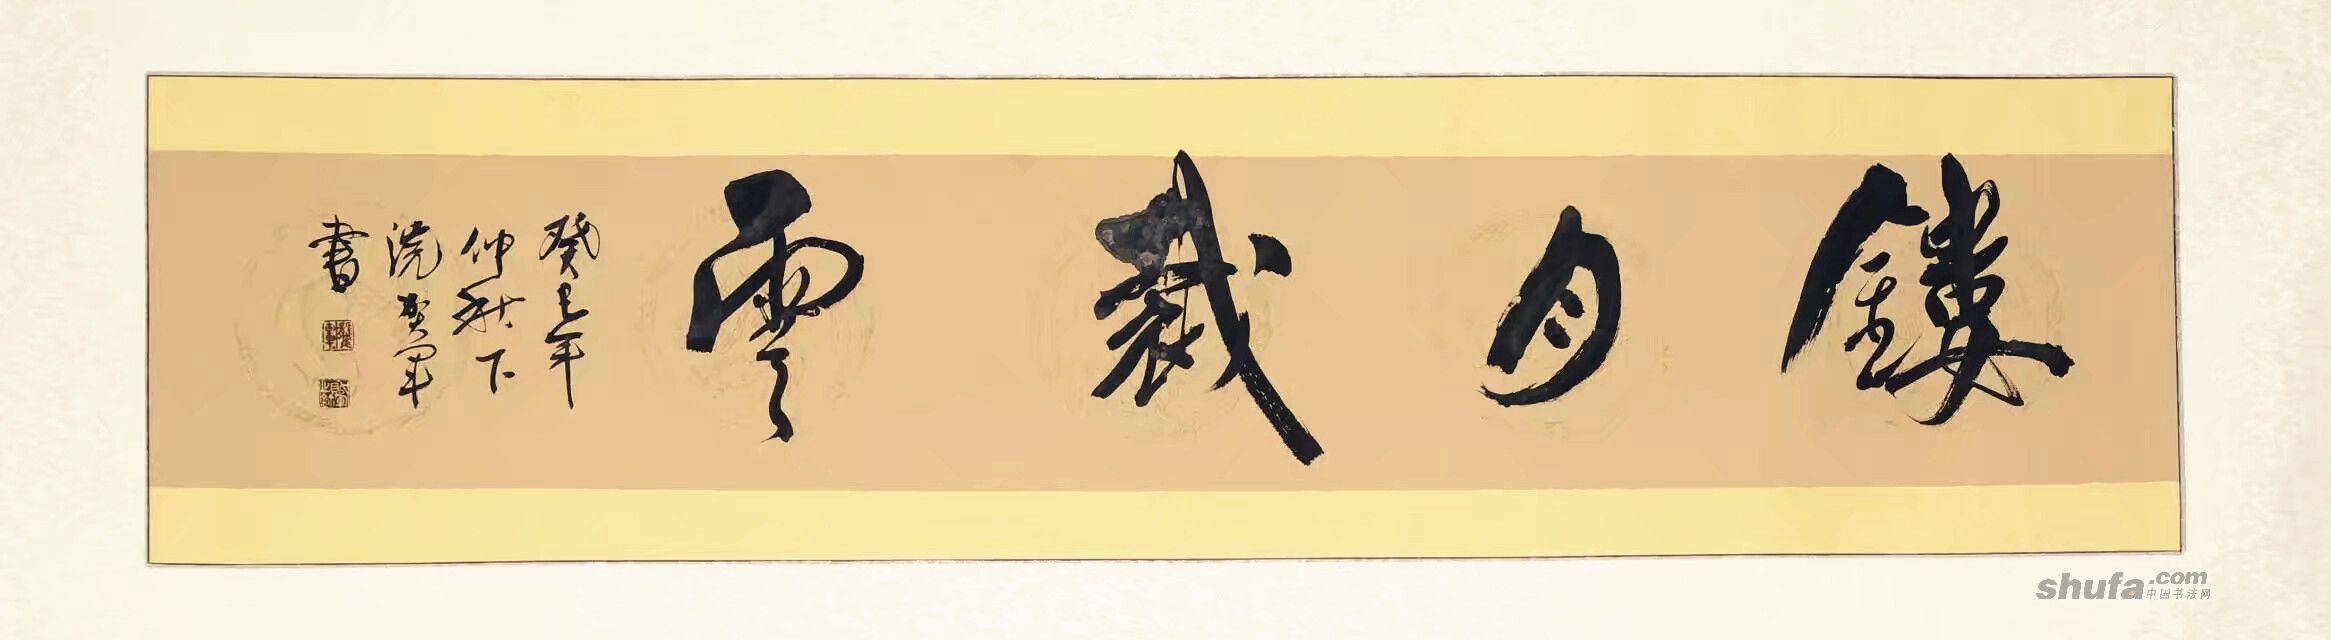 鏤月裁雲
癸巳年
仲秋下
浣賀军
書
shufa.com
中国书法网